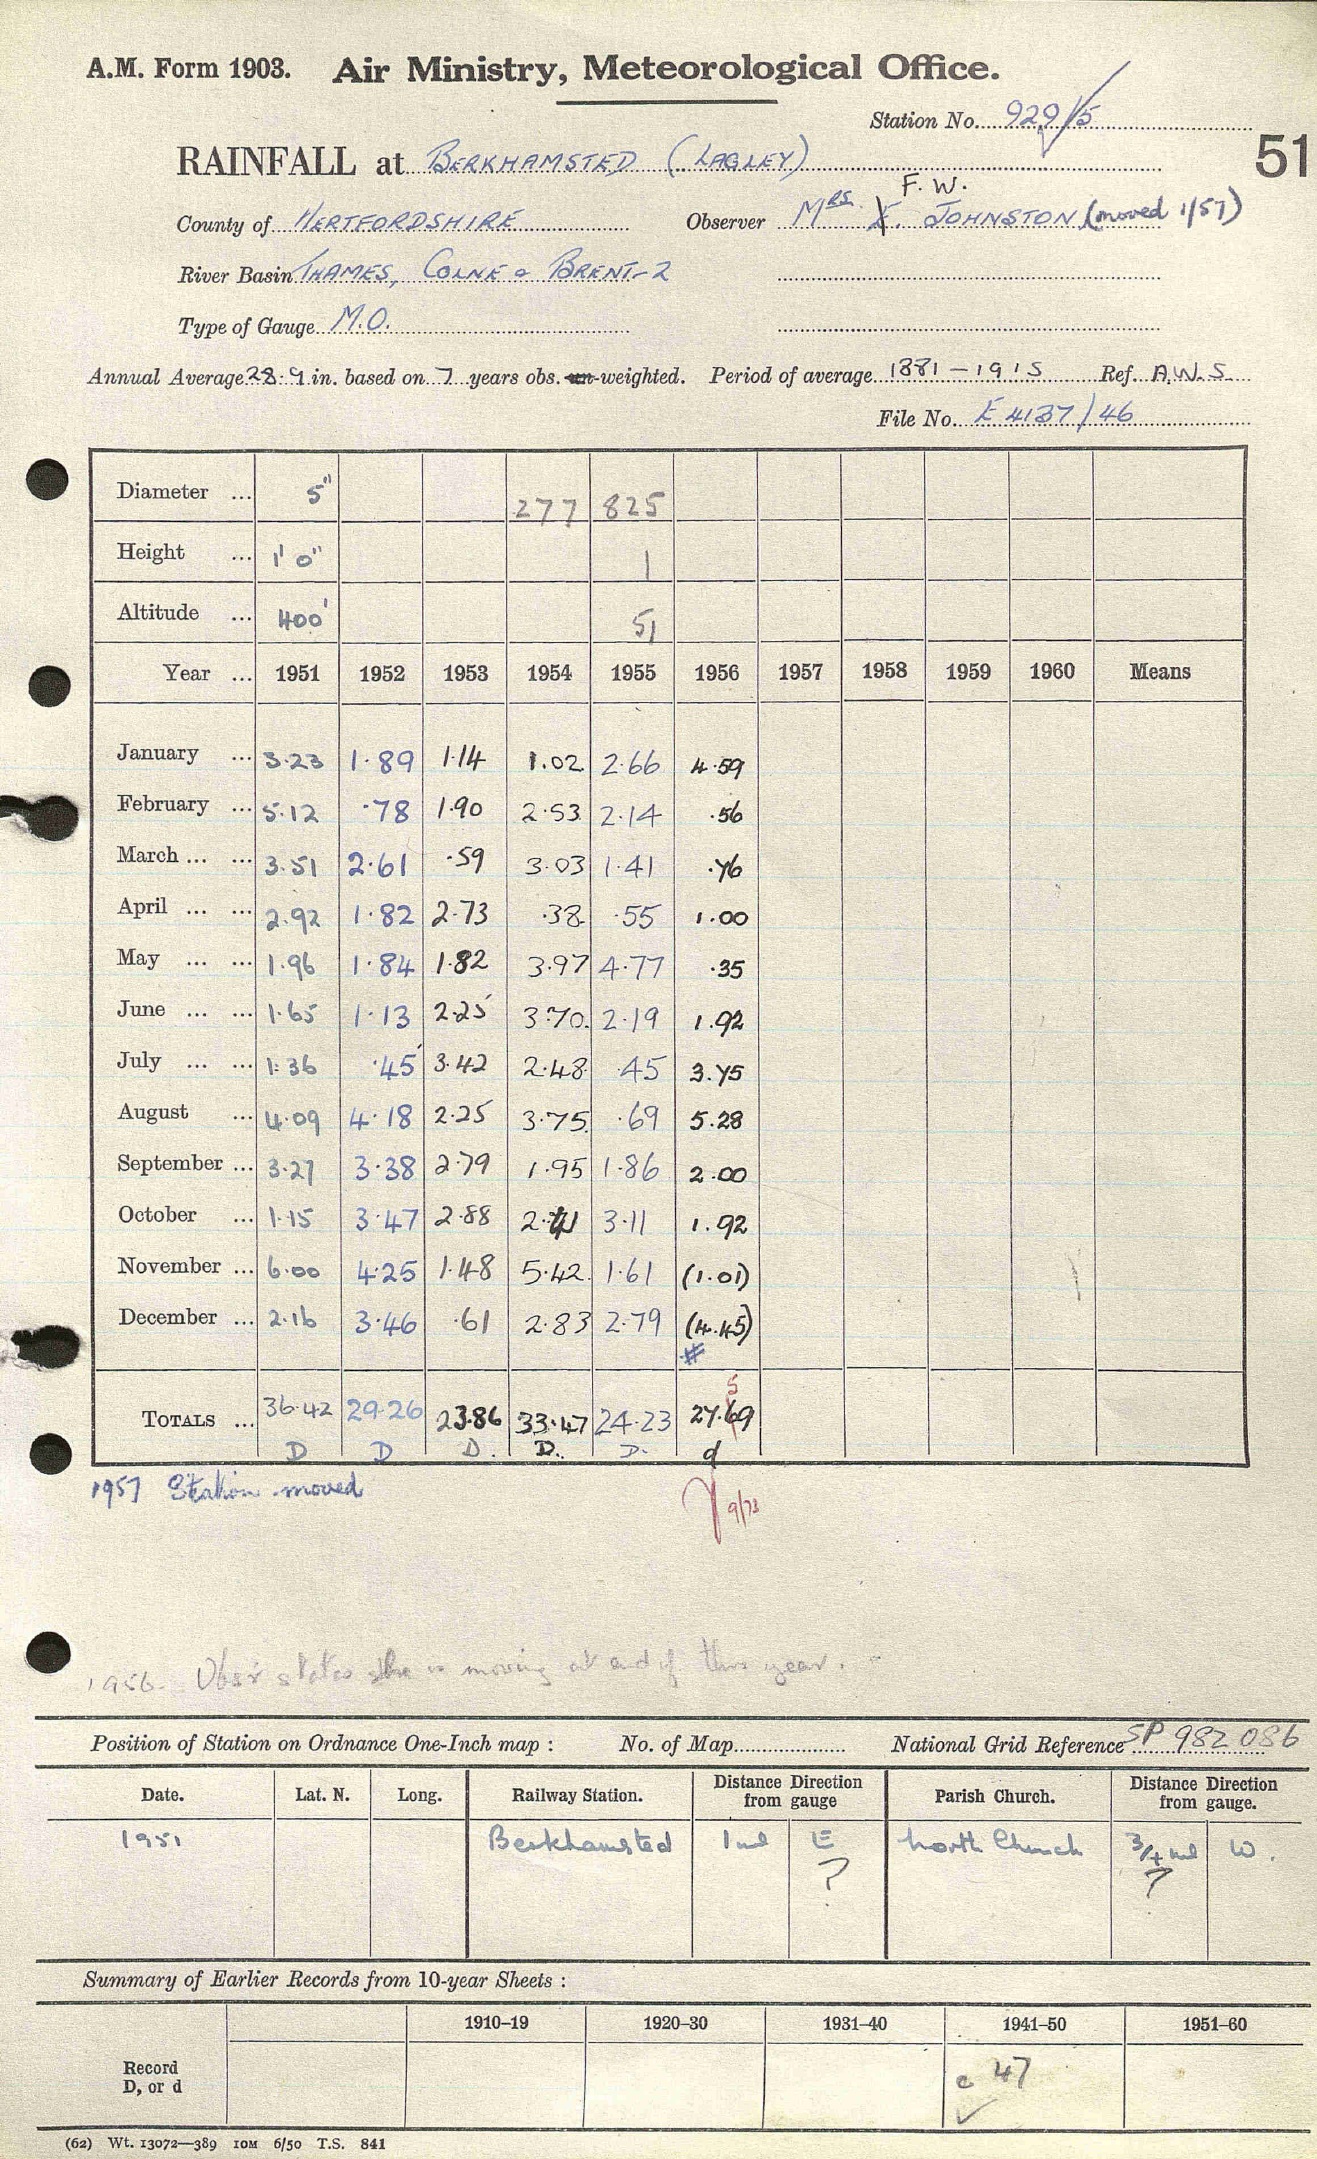 A.M. Form 1903. Air Ministry, Meteorological Office.
Station No. 929/5
51
RAINFALL at BERKHAMSTED (LAGLEY)
F. W.
County of HERTFORDSHIRE Observer MRS E. JOHNSTON (moved 1/57)
River Basin THAMES, COLNE & BRENT-2
Type of Gauge M.O.
Annual Average 28.9 in. based on 7 years obs. un-weighted. Period of average 1881-1915 Ref. A.W.S.
File No. E 4137/46
Diameter ... 5" 277 825
Height ... 1' 0" 1
Altitude ... 400' 51
Year ... 1951 1952 1953 1954 1955 1956 1957 1958 1959 1960 Means
January ... 3.23 1.89 1.14 1.02 2.66 4.59
February ... 5.12 .78 1.90 2.53 2.14 .56
March ... ... 3.51 2.61 .59 3.03 1.41 .76
April ... ... 2.92 1.82 2.73 .38 .55 1.00
May ... ... 1.96 1.84 1.82 3.97 4.77 .35
June ... ... 1.65 1.13 2.25 3.70 2.19 1.92
July ... ... 1.36 .45 3.42 2.48 .45 3.75
August ... 4.09 4.18 2.25 3.75 .69 5.28
September ... 3.27 3.38 2.79 1.95 1.86 2.00
October ... 1.15 3.47 2.88 2.41 3.11 1.92
November ... 6.00 4.25 1.48 5.42 1.61 (1.01)
December ... 2.16 3.46 .61 2.83 2.79 (4.45)
#
5
TOTALS ... 36.42 29.26 23.86 33.47 24.23 27.69
D D D. D. D. d
1957 Station moved
9/73
1956. Obsr states she is moving at end of this year.
Position of Station on Ordnance One-Inch map : No. of Map National Grid Reference SP 982 086
Date. Lat. N. Long. Railway Station. Distance Direction from gauge Parish Church. Distance Direction from gauge.
1951 Berkhamsted 1 ml E North Church 3/4 ml W.
? ?
Summary of Earlier Records from 10-year Sheets :
1910–19 1920–30 1931–40 1941–50 1951–60
Record
D, or d
c 47
(62) Wt. 13072—389 10M 6/50 T.S. 841